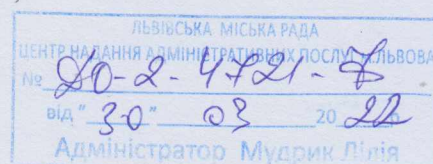 ЛЬВІВСЬКА МІСЬКА РАДА
ЦЕНТР НАДАННЯ АДМІНІСТРАТИВНИХ ПОСЛУГ М.ЛЬВОВА
№ ДО-2-4721-
від "30" 03 2022
Адміністратор Мудрик Лілія